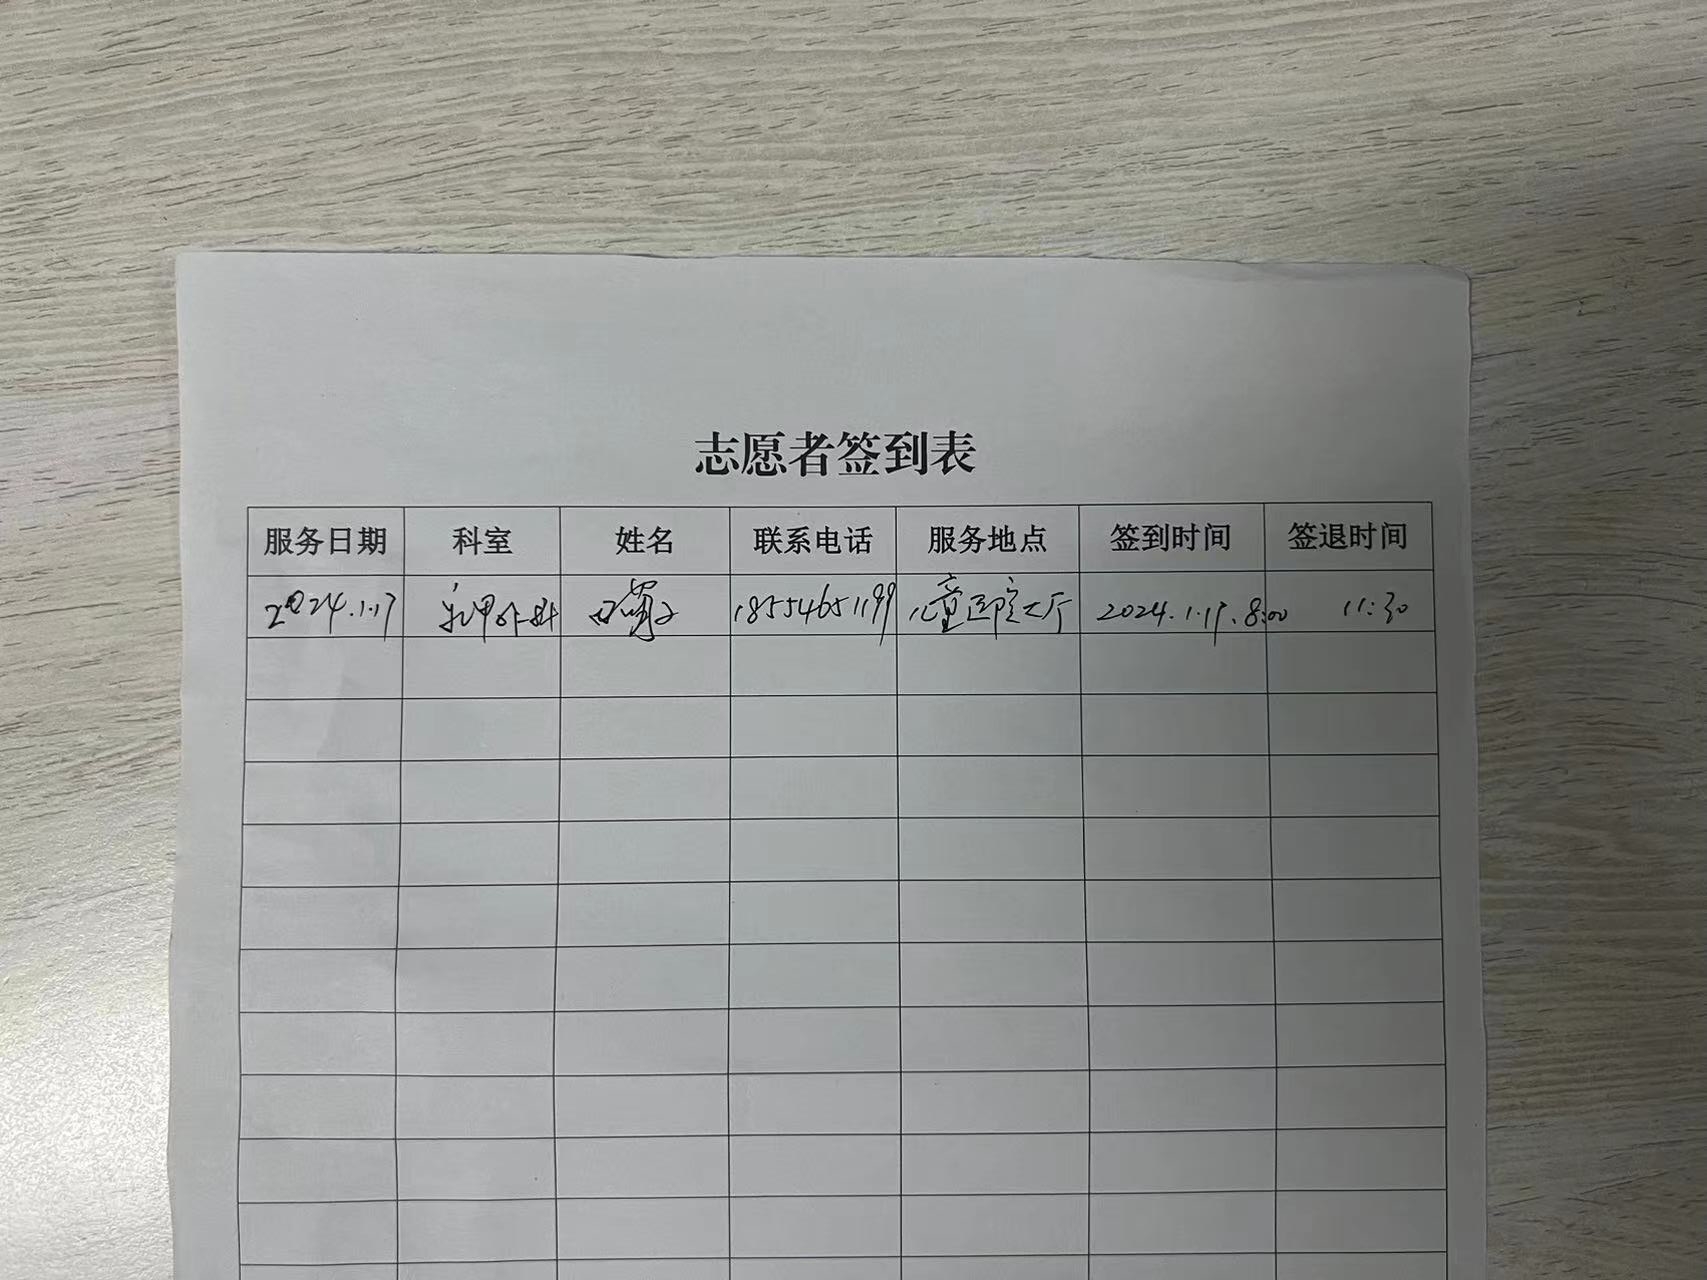 志愿者签到表
服务日期 科室 姓名 联系电话 服务地点 签到时间 签退时间
2024.1.17 乳甲外科 18554651199 儿童医院大厅 2024.1.17.8:00 11:30